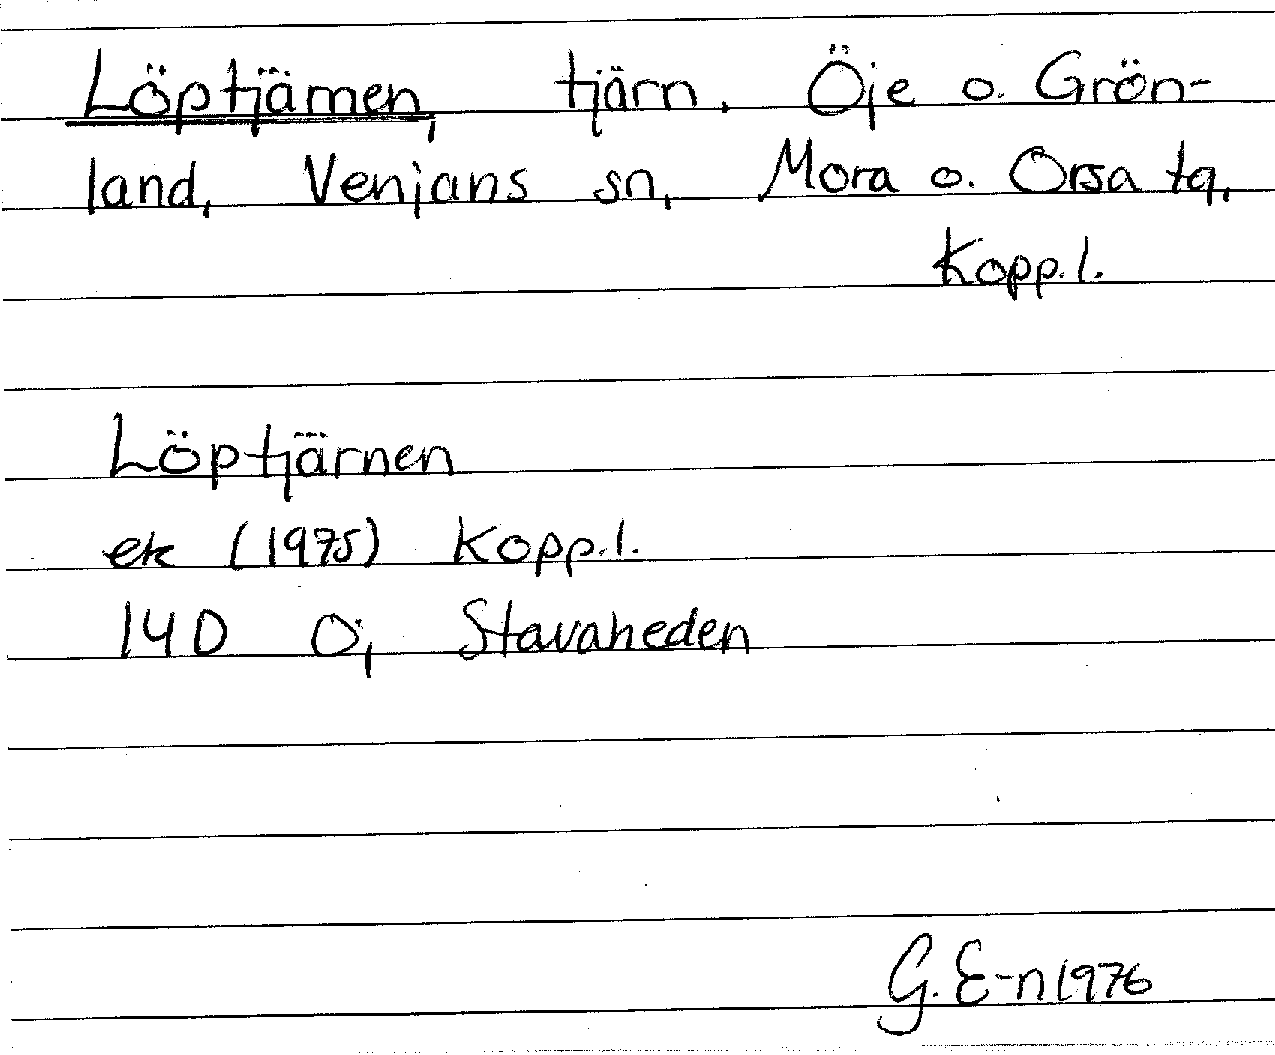 Löptjärnen, tjärn, Öje o. Grön-
land, Venjans sn, Mora o. Orsa tg,
Kopp.l.
Löptjärnen
ek (1975) Kopp.l.
14D Öj Stavaheden
G. E-n 1976